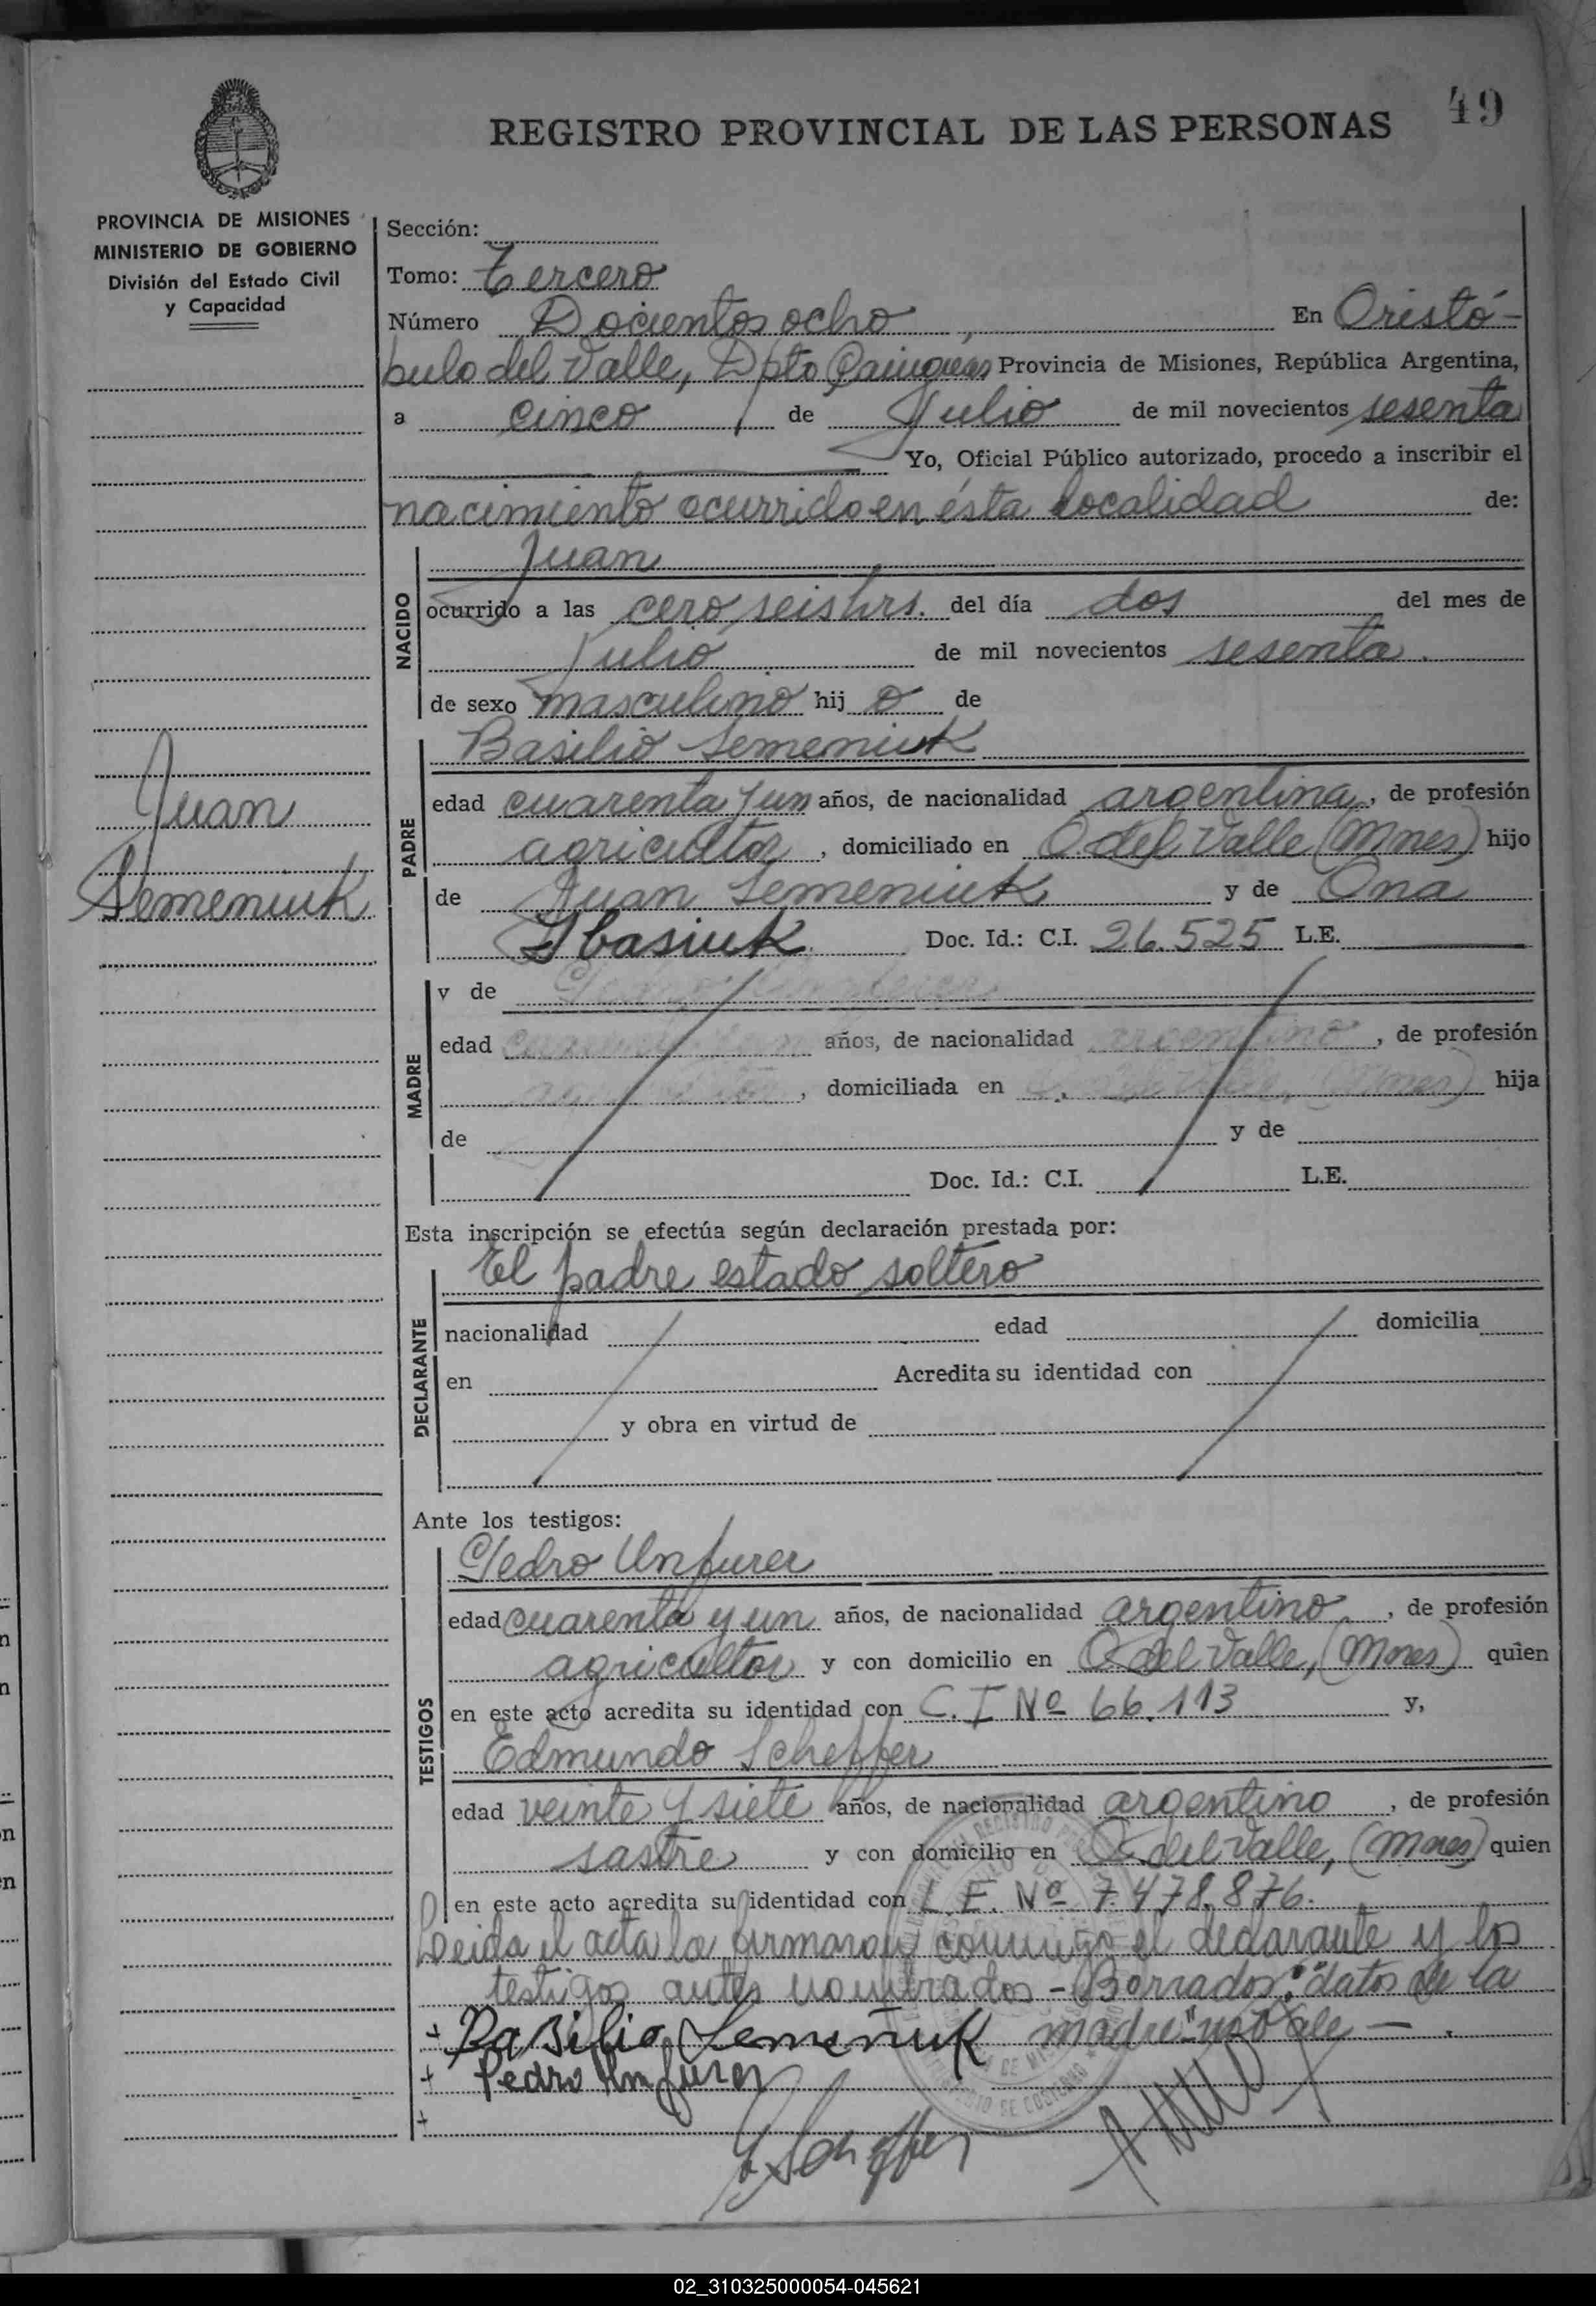 49
REGISTRO PROVINCIAL DE LAS PERSONAS
PROVINCIA DE MISIONES
MINISTERIO DE GOBIERNO
División del Estado Civil
y Capacidad
Juan
Semeniuk
Sección:
Tomo: Tercero
Número Docientos ocho, En Aristó-
bulo del Valle, Dpto Cainguas Provincia de Misiones, República Argentina,
a cinco de Julio de mil novecientos sesenta
Yo, Oficial Público autorizado, procedo a inscribir el
nacimiento ocurrido en ésta localidad de:
NACIDO
Juan
ocurrido a las cero seis hrs. del día dos del mes de
Julio de mil novecientos sesenta.
de sexo masculino hij o de
PADRE
Basilio Semeniuk
edad cuarenta y un años, de nacionalidad argentina, de profesión
agricultor, domiciliado en A. del Valle (Mnes) hijo
de Juan Semeniuk y de Ana
Doc. Id.: C.I. 26.525 L.E.
MADRE
y de
edad años, de nacionalidad argentino, de profesión
, domiciliada en (Mnes) hija
de y de
Doc. Id.: C.I. L.E.
Esta inscripción se efectúa según declaración prestada por:
DECLARANTE
El padre estado soltero
nacionalidad edad domicilia
en Acredita su identidad con
y obra en virtud de
Ante los testigos:
TESTIGOS
Pedro Unfurer
edad cuarenta y un años, de nacionalidad argentino, de profesión
agricultor y con domicilio en A. del Valle, (Mnes) quien
en este acto acredita su identidad con C. I Nº 66.113 y,
Edmundo Scheffer
edad veinte y siete años, de nacionalidad argentino, de profesión
sastre y con domicilio en A. del Valle, (Mnes) quien
en este acto acredita su identidad con L. E. Nº 7.478.876.
Leida el acta la firmaron conmigo el declarante y los
testigos antes nombrados - Borrados: "datos de la
+ Basilio Semeñuk madre" no vale —.
+ Pedro Unfurer
+
Scheffer
02_310325000054-045621